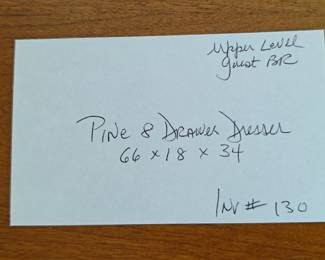 Upper Level
Guest BR
Pine 8 Drawer Dresser
66 x 18 x 34
Inv # 130